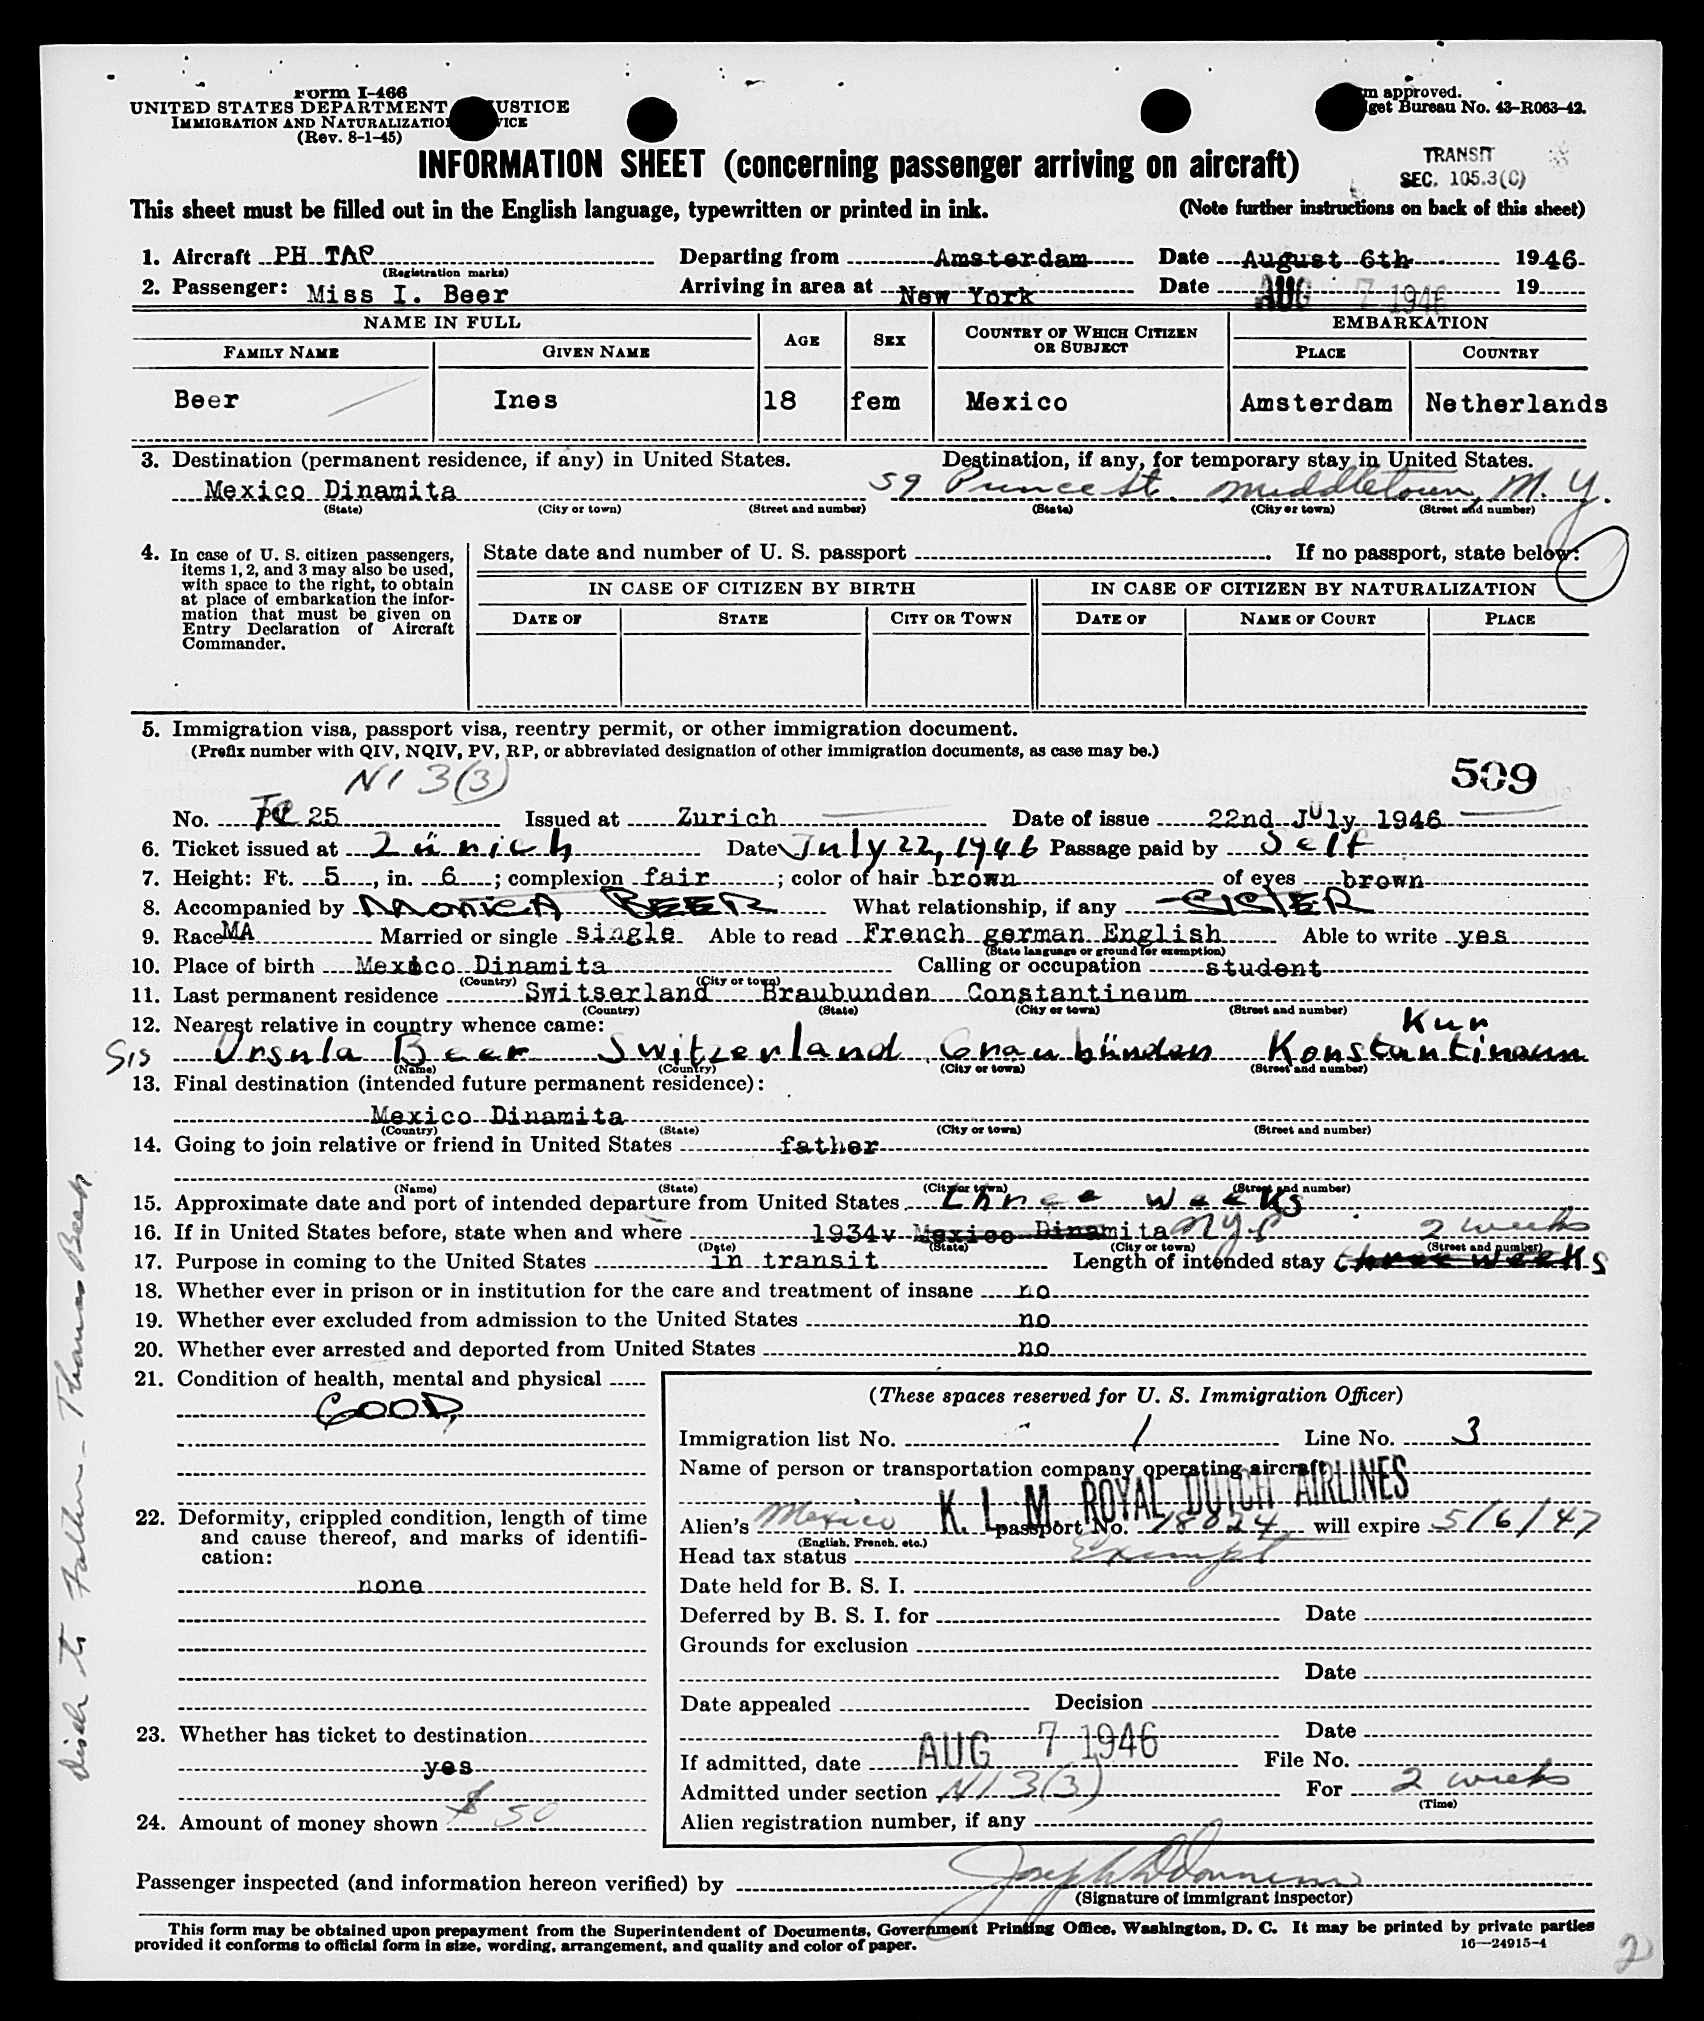 Form I-466
UNITED STATES DEPARTMENT USTICE
IMMIGRATION AND NATURALIZATIO VICE
(Rev. 8-1-45)
m approved.
get Bureau No. 43-R063-42.
INFORMATION SHEET (concerning passenger arriving on aircraft)
TRANSIT
SEC. 105.3(C)
This sheet must be filled out in the English language, typewritten or printed in ink. (Note further instructions on back of this sheet)
1. Aircraft PH TAP Departing from Amsterdam Date August 6th 1946
(Registration marks)
2. Passenger: Miss I. Beer Arriving in area at New York Date AUG 7 1946 19
NAME IN FULL AGE SEX COUNTRY OF WHICH CITIZEN OR SUBJECT EMBARKATION
FAMILY NAME GIVEN NAME PLACE COUNTRY
Beer Ines 18 fem Mexico Amsterdam Netherlands
3. Destination (permanent residence, if any) in United States. Destination, if any, for temporary stay in United States.
Mexico Dinamita 59 Prince St. Middletown, N.Y.
(State) (City or town) (Street and number) (State) (City or town) (Street and number)
4. In case of U. S. citizen passengers, items 1, 2, and 3 may also be used, with space to the right, to obtain at place of embarkation the information that must be given on Entry Declaration of Aircraft Commander.
State date and number of U. S. passport . If no passport, state below:
IN CASE OF CITIZEN BY BIRTH IN CASE OF CITIZEN BY NATURALIZATION
DATE OF STATE CITY OR TOWN DATE OF NAME OF COURT PLACE
5. Immigration visa, passport visa, reentry permit, or other immigration document.
(Prefix number with QIV, NQIV, PV, RP, or abbreviated designation of other immigration documents, as case may be.)
NI 3(3) 509
No. 25 Issued at Zurich Date of issue 22nd July 1946
6. Ticket issued at Zürich Date July 22, 1946 Passage paid by Self
7. Height: Ft. 5, in. 6; complexion fair; color of hair brown of eyes brown
8. Accompanied by MONICA BEER What relationship, if any SISTER
9. Race MA Married or single single Able to read French german English Able to write yes
(State language or ground for exemption)
10. Place of birth Mexico Dinamita Calling or occupation student
(Country) (City or town)
11. Last permanent residence Switserland Braubunden Constantineum
(Country) (State) (City or town) (Street and number)
12. Nearest relative in country whence came: Kur
Sis Ursula Beer Switzerland Graubünden Konstantineum
(Name) (Country) (City or town) (Street and number)
13. Final destination (intended future permanent residence):
Mexico Dinamita
(Country) (State) (City or town) (Street and number)
14. Going to join relative or friend in United States father
(Name) (State) (City or town) (Street and number)
15. Approximate date and port of intended departure from United States three weeks
16. If in United States before, state when and where 1934 v Mexico Dinamita N.Y.P 2 weeks
(Date) (State) (City or town) (Street and number)
17. Purpose in coming to the United States in transit Length of intended stay three weeks
18. Whether ever in prison or in institution for the care and treatment of insane no
19. Whether ever excluded from admission to the United States no
20. Whether ever arrested and deported from United States no
21. Condition of health, mental and physical
GOOD,
22. Deformity, crippled condition, length of time and cause thereof, and marks of identification:
none
23. Whether has ticket to destination
yes
24. Amount of money shown $50
(These spaces reserved for U. S. Immigration Officer)
Immigration list No. 1 Line No. 3
Name of person or transportation company operating aircraft
K. L. M. ROYAL DUTCH AIRLINES
Alien's Mexico passport No. 18824 will expire 5/6/47
(English, French, etc.)
Head tax status Exempt
Date held for B. S. I.
Deferred by B. S. I. for Date
Grounds for exclusion
Date
Date appealed Decision
Date
If admitted, date AUG 7 1946 File No.
Admitted under section NI 3(3) For 2 weeks
(Time)
Alien registration number, if any
Passenger inspected (and information hereon verified) by
(Signature of immigrant inspector)
This form may be obtained upon prepayment from the Superintendent of Documents, Government Printing Office, Washington, D. C. It may be printed by private parties
provided it conforms to official form in size, wording, arrangement, and quality and color of paper. 16—24915-4
2
to Father - Thomas Beer